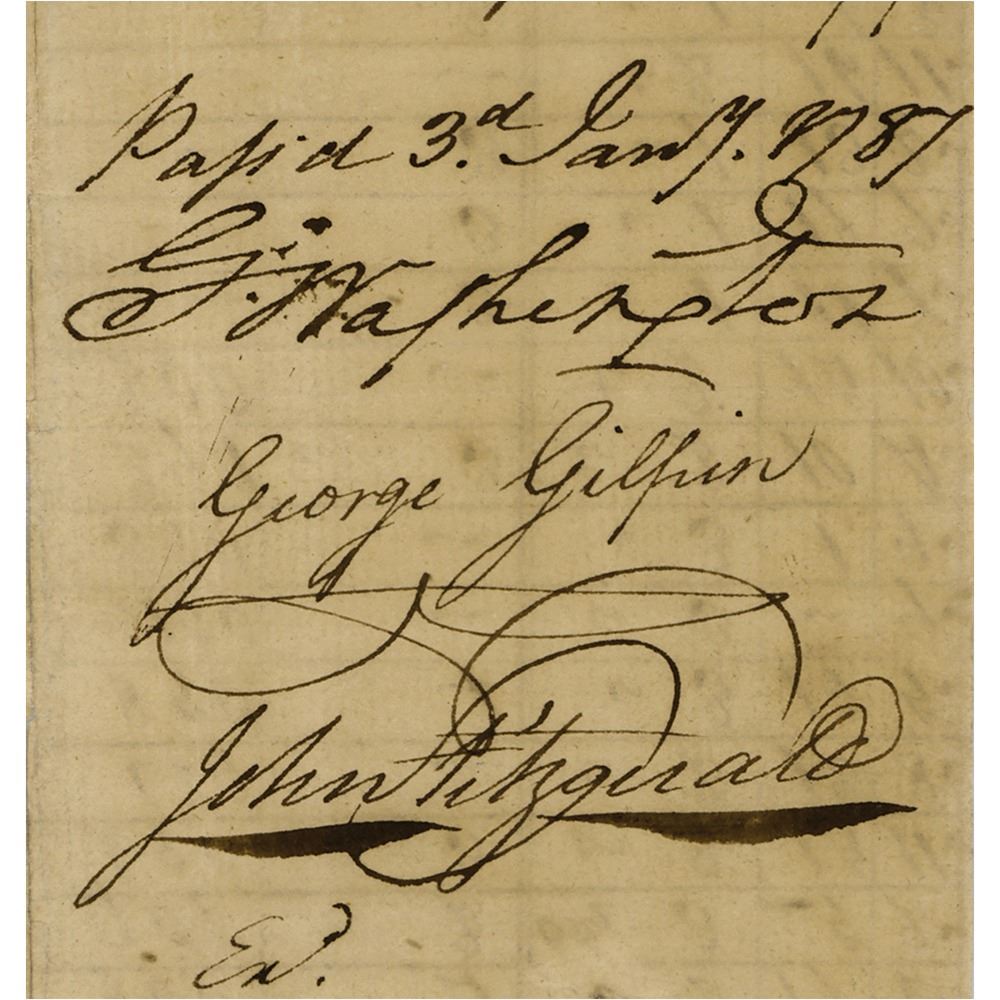 Pass'd 3.d Jany. 1787
Go: Washington
George Gilpin
John Fitzgerald
Ex'd.